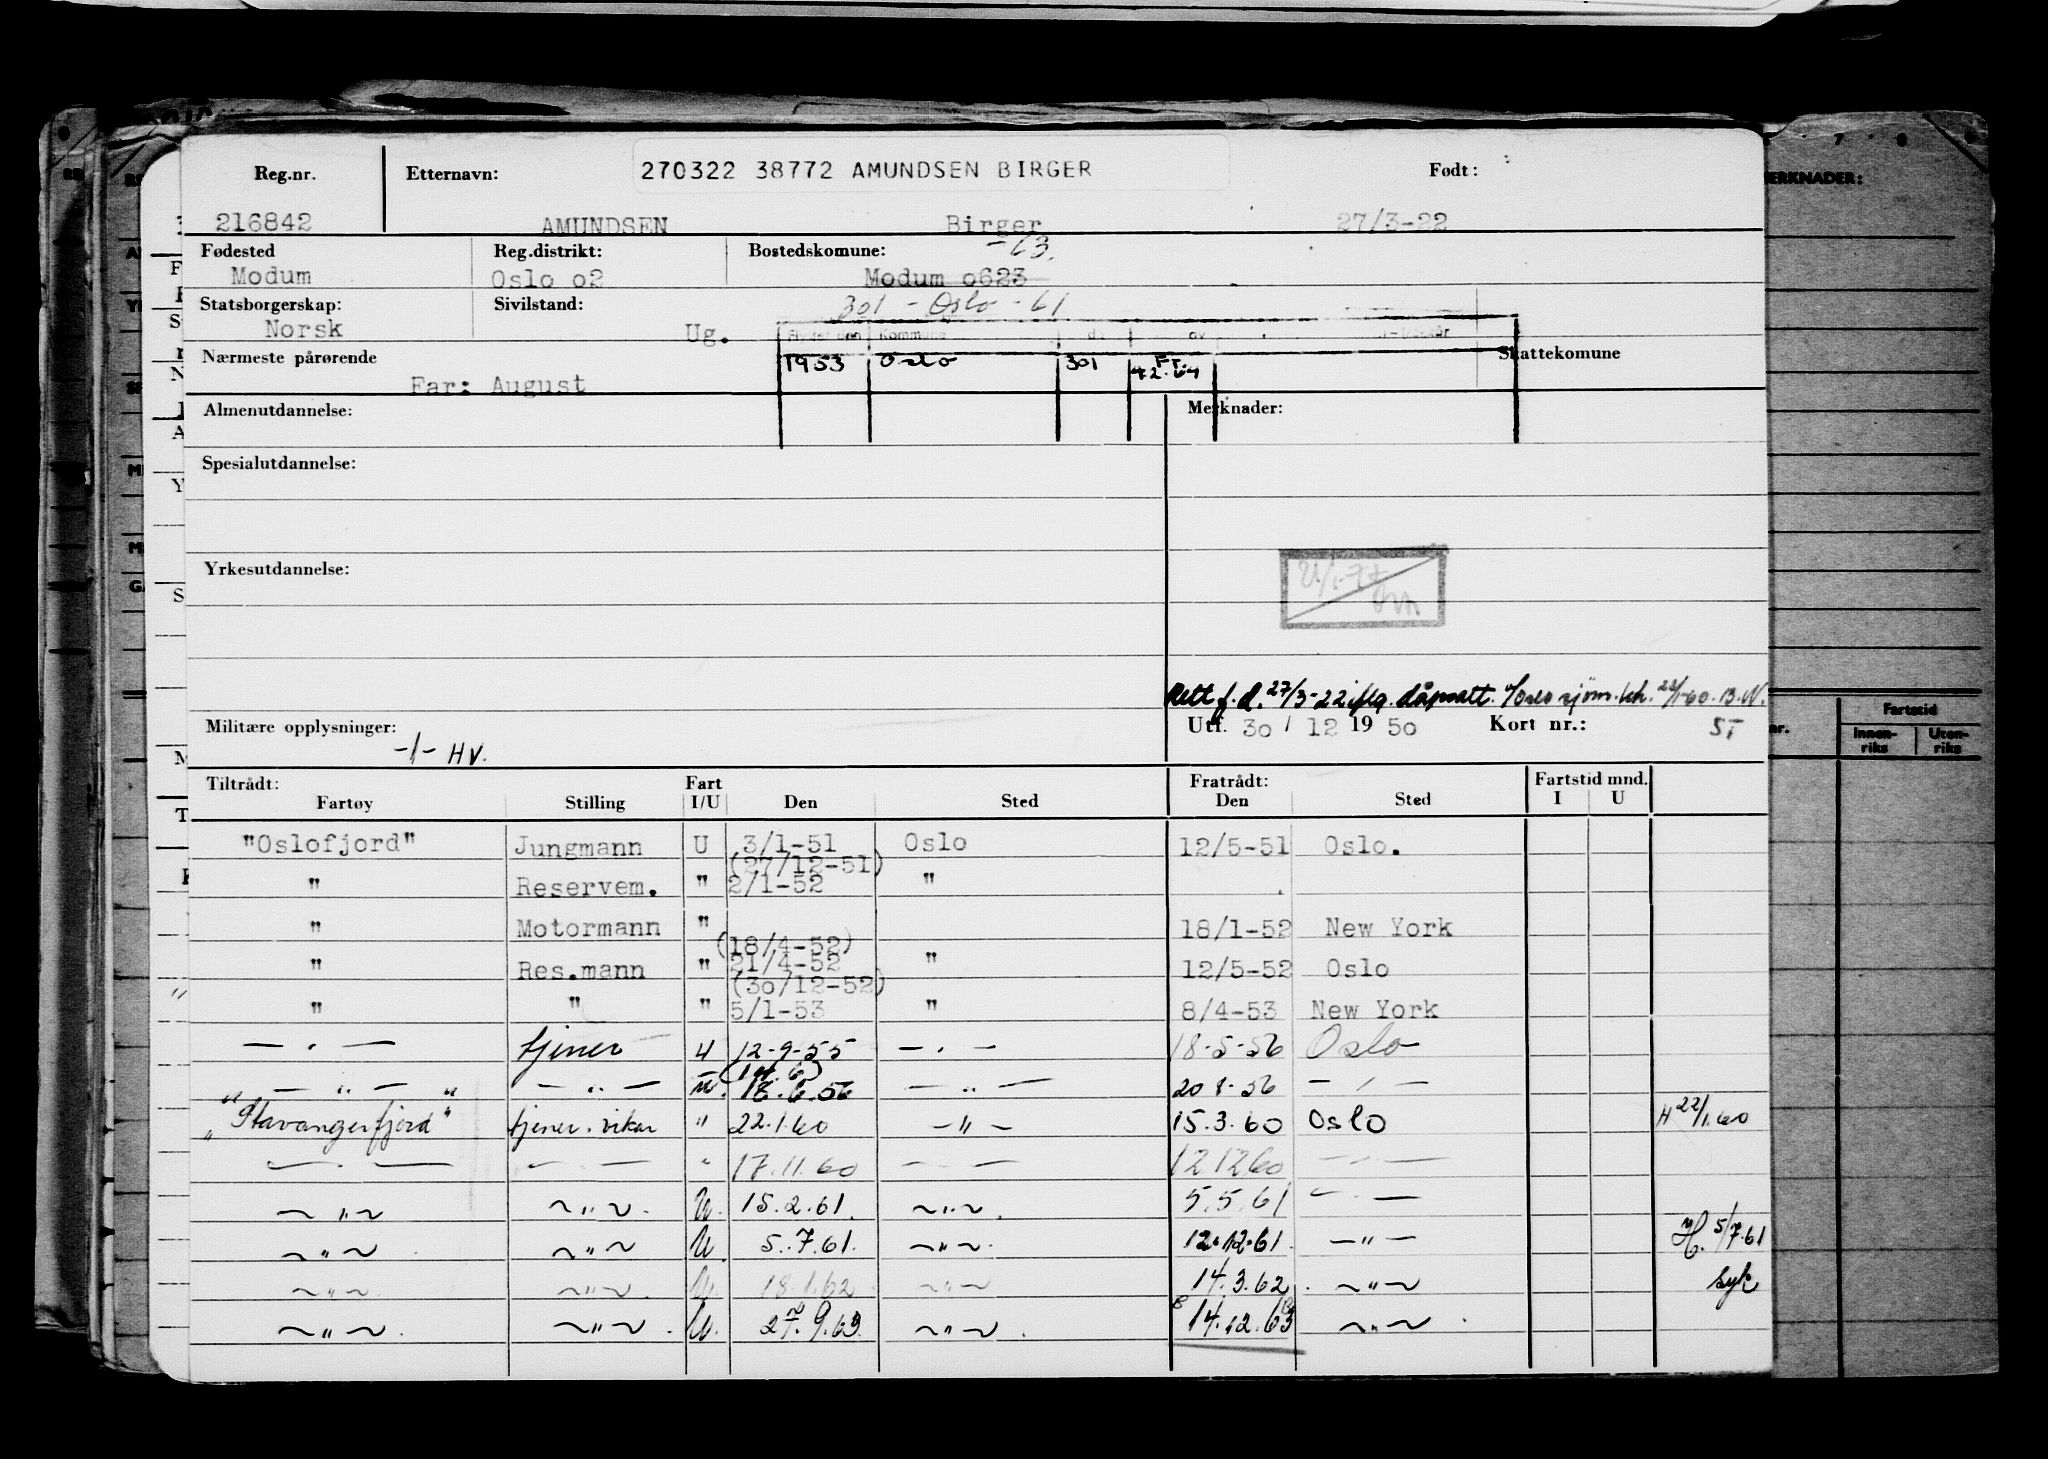 Reg.nr. Etternavn: 270322 38772 AMUNDSEN BIRGER Født:
216842 AMUNDSEN Birger 27/3-22
Fødested Reg.distrikt: Bostedskomune: -63.
Modum Oslo o2 Modum o623
Statsborgerskap: Sivilstand: 301 - Oslo - 61
Norsk Ug.
Kommune
Nærmeste pårørende 1953 Oslo 301 Skattekomune
Far: August
Almenutdannelse: Merknader:
Spesialutdannelse:
Yrkesutdannelse:
Rett f.d. 27/3-22 iflg. dåpsatt. Oslo sjøm.kh. 22/1-60. B.N.
Militære opplysninger: Utf. 30 / 12 19 50 Kort nr.: ST
-/- HV.
Tiltrådt: Fart Fratrådt: Fartstid mnd.
Fartøy Stilling I/U Den Sted Den Sted I U
"Oslofjord" Jungmann U 3/1-51 Oslo 12/5-51 Oslo.
(27/12-51)
" Reservem. " 2/1-52 "
" Motormann " 18/1-52 New York
(18/4-52)
" Res.mann " 21/4-52 " 12/5-52 Oslo
(30/12-52)
" " " 5/1-53 " 8/4-53 New York
— " — tjener U 12-9-55 — " — 18-5-56 Oslo
(14.6)
— " — — " — " 18.6.56 — " — 20 8-56 — " —
"Stavangerfjord" tjener.vikar " 22.1.60 — " — 15.3.60 Oslo H 22/1.60
— " — — " — " 17.11.60 — " — 12 12 60 — " —
~ " ~ ~ " ~ . U. 15.2.61. ~ " ~ . 5.5.61 — " —
~ " ~ . ~ " ~ U 5.7.61. ~ " ~ . 12.12.61. — " — H. 5/7.61
~ " ~ . ~ " ~ . U. 18.1.62 ~ " ~ 14.3.62. ~ " ~ Syk
~ " ~ . ~ " ~ . U. 27.9.63. ~ " ~ . 14.12.63 ~ " ~ .
MERKNADER:
Fartstid
nr. Innen-riks Uten-riks